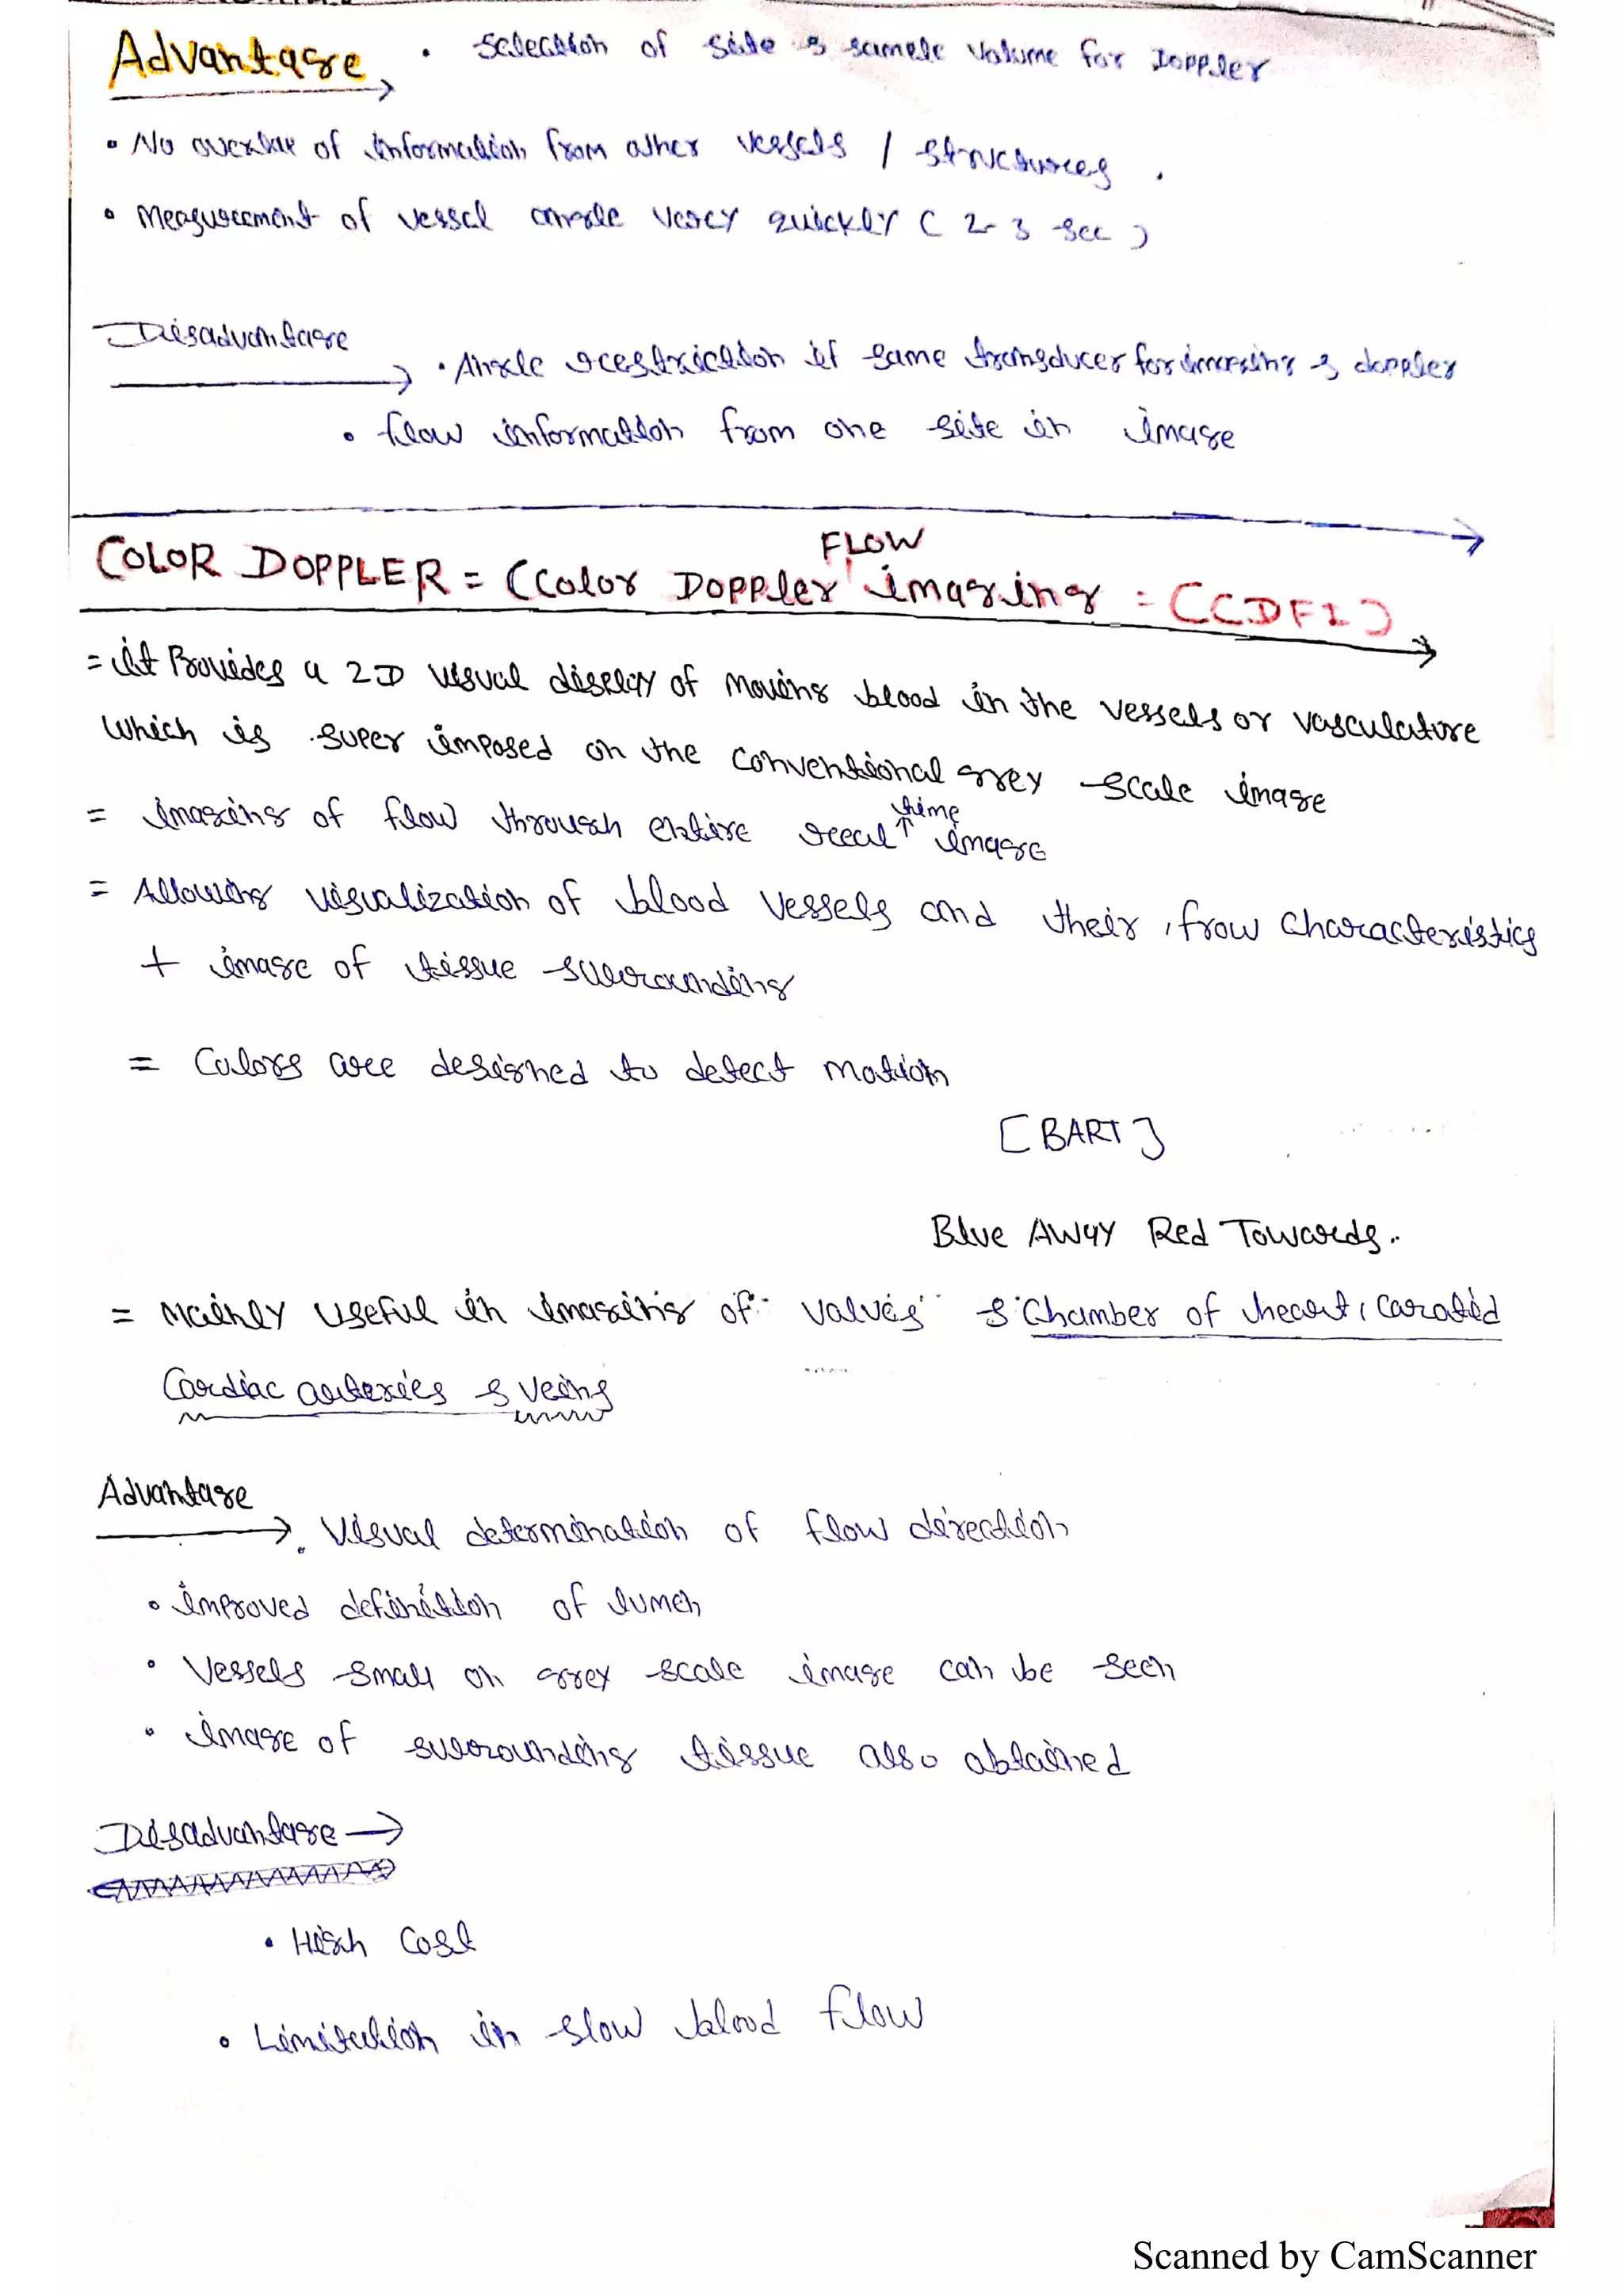 Advantage
• Selection of site & sample volume for Doppler
• No overlap of information from other vessels / structures .
• Measurement of vessel angle very quickly ( 2-3 sec )
Disadvantage
• Angle restriction if same transducer for imaging & doppler
• flow information from one site in image
FLOW
COLOR DOPPLER = (Color Doppler imaging = (CDFI)
= it Provides a 2D visual display of moving blood in the vessels or vasculature
Which is super imposed on the conventional grey -scale image
time
= imaging of flow through entire real ↑ image
= Allowing visualization of blood vessels and their , frow characteristics
+ image of tissue surrounding
= Colors are designed to detect motion
[BART]
Blue Away Red Towards.
= Mainly useful in imaging of valves & Chamber of heart, Carotid
Cardiac arteries & veins
Advantage
• Visual determination of flow direction
• improved definition of lumen
• Vessels small on grey scale image can be seen
• image of surrounding tissue also obtained
Disadvantage →
• High Cost
• Limitation in slow blood flow
Scanned by CamScanner